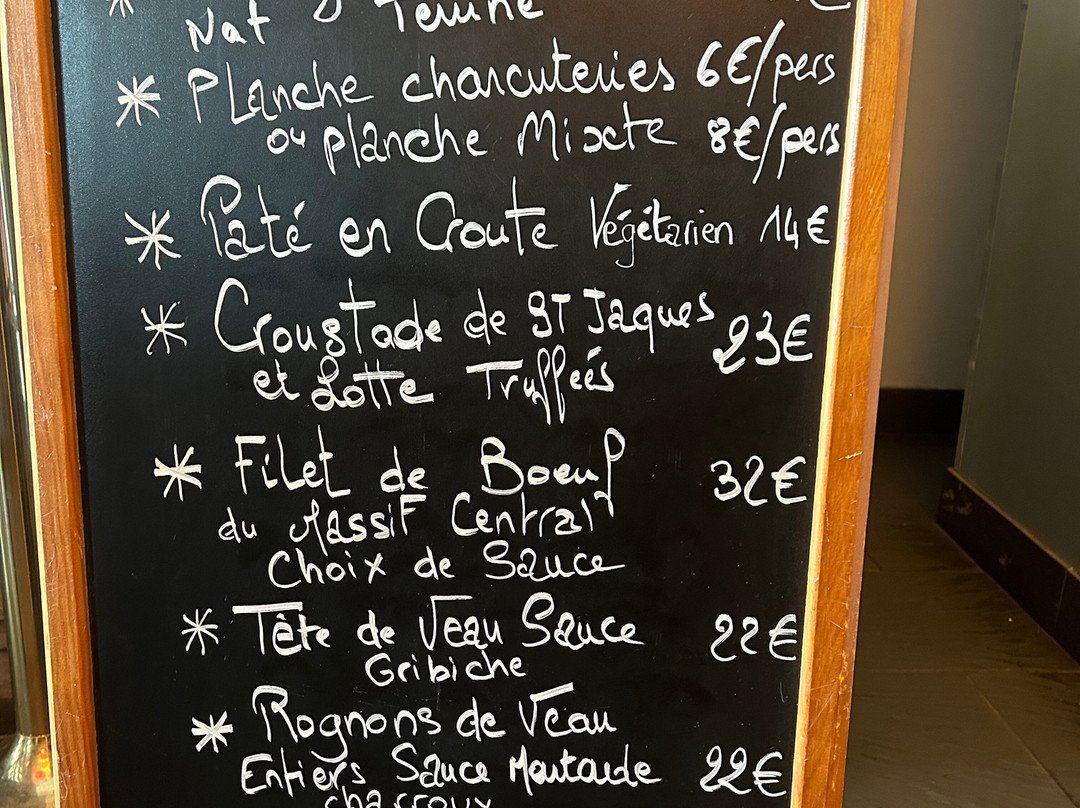 Nat Terrine
* Planche charcuteries 6€/pers
ou planche Mixte 8€/pers
* Paté en Croute Végétarien 14€
* Croustade de ST Jaques 23€
et Lotte Truffeés
* Filet de Boeuf 32€
du Massif Central
Choix de Sauce
* Tête de Veau Sauce 22€
Gribiche
* Rognons de Veau
Entiers Sauce Moutarde 22€
charroux